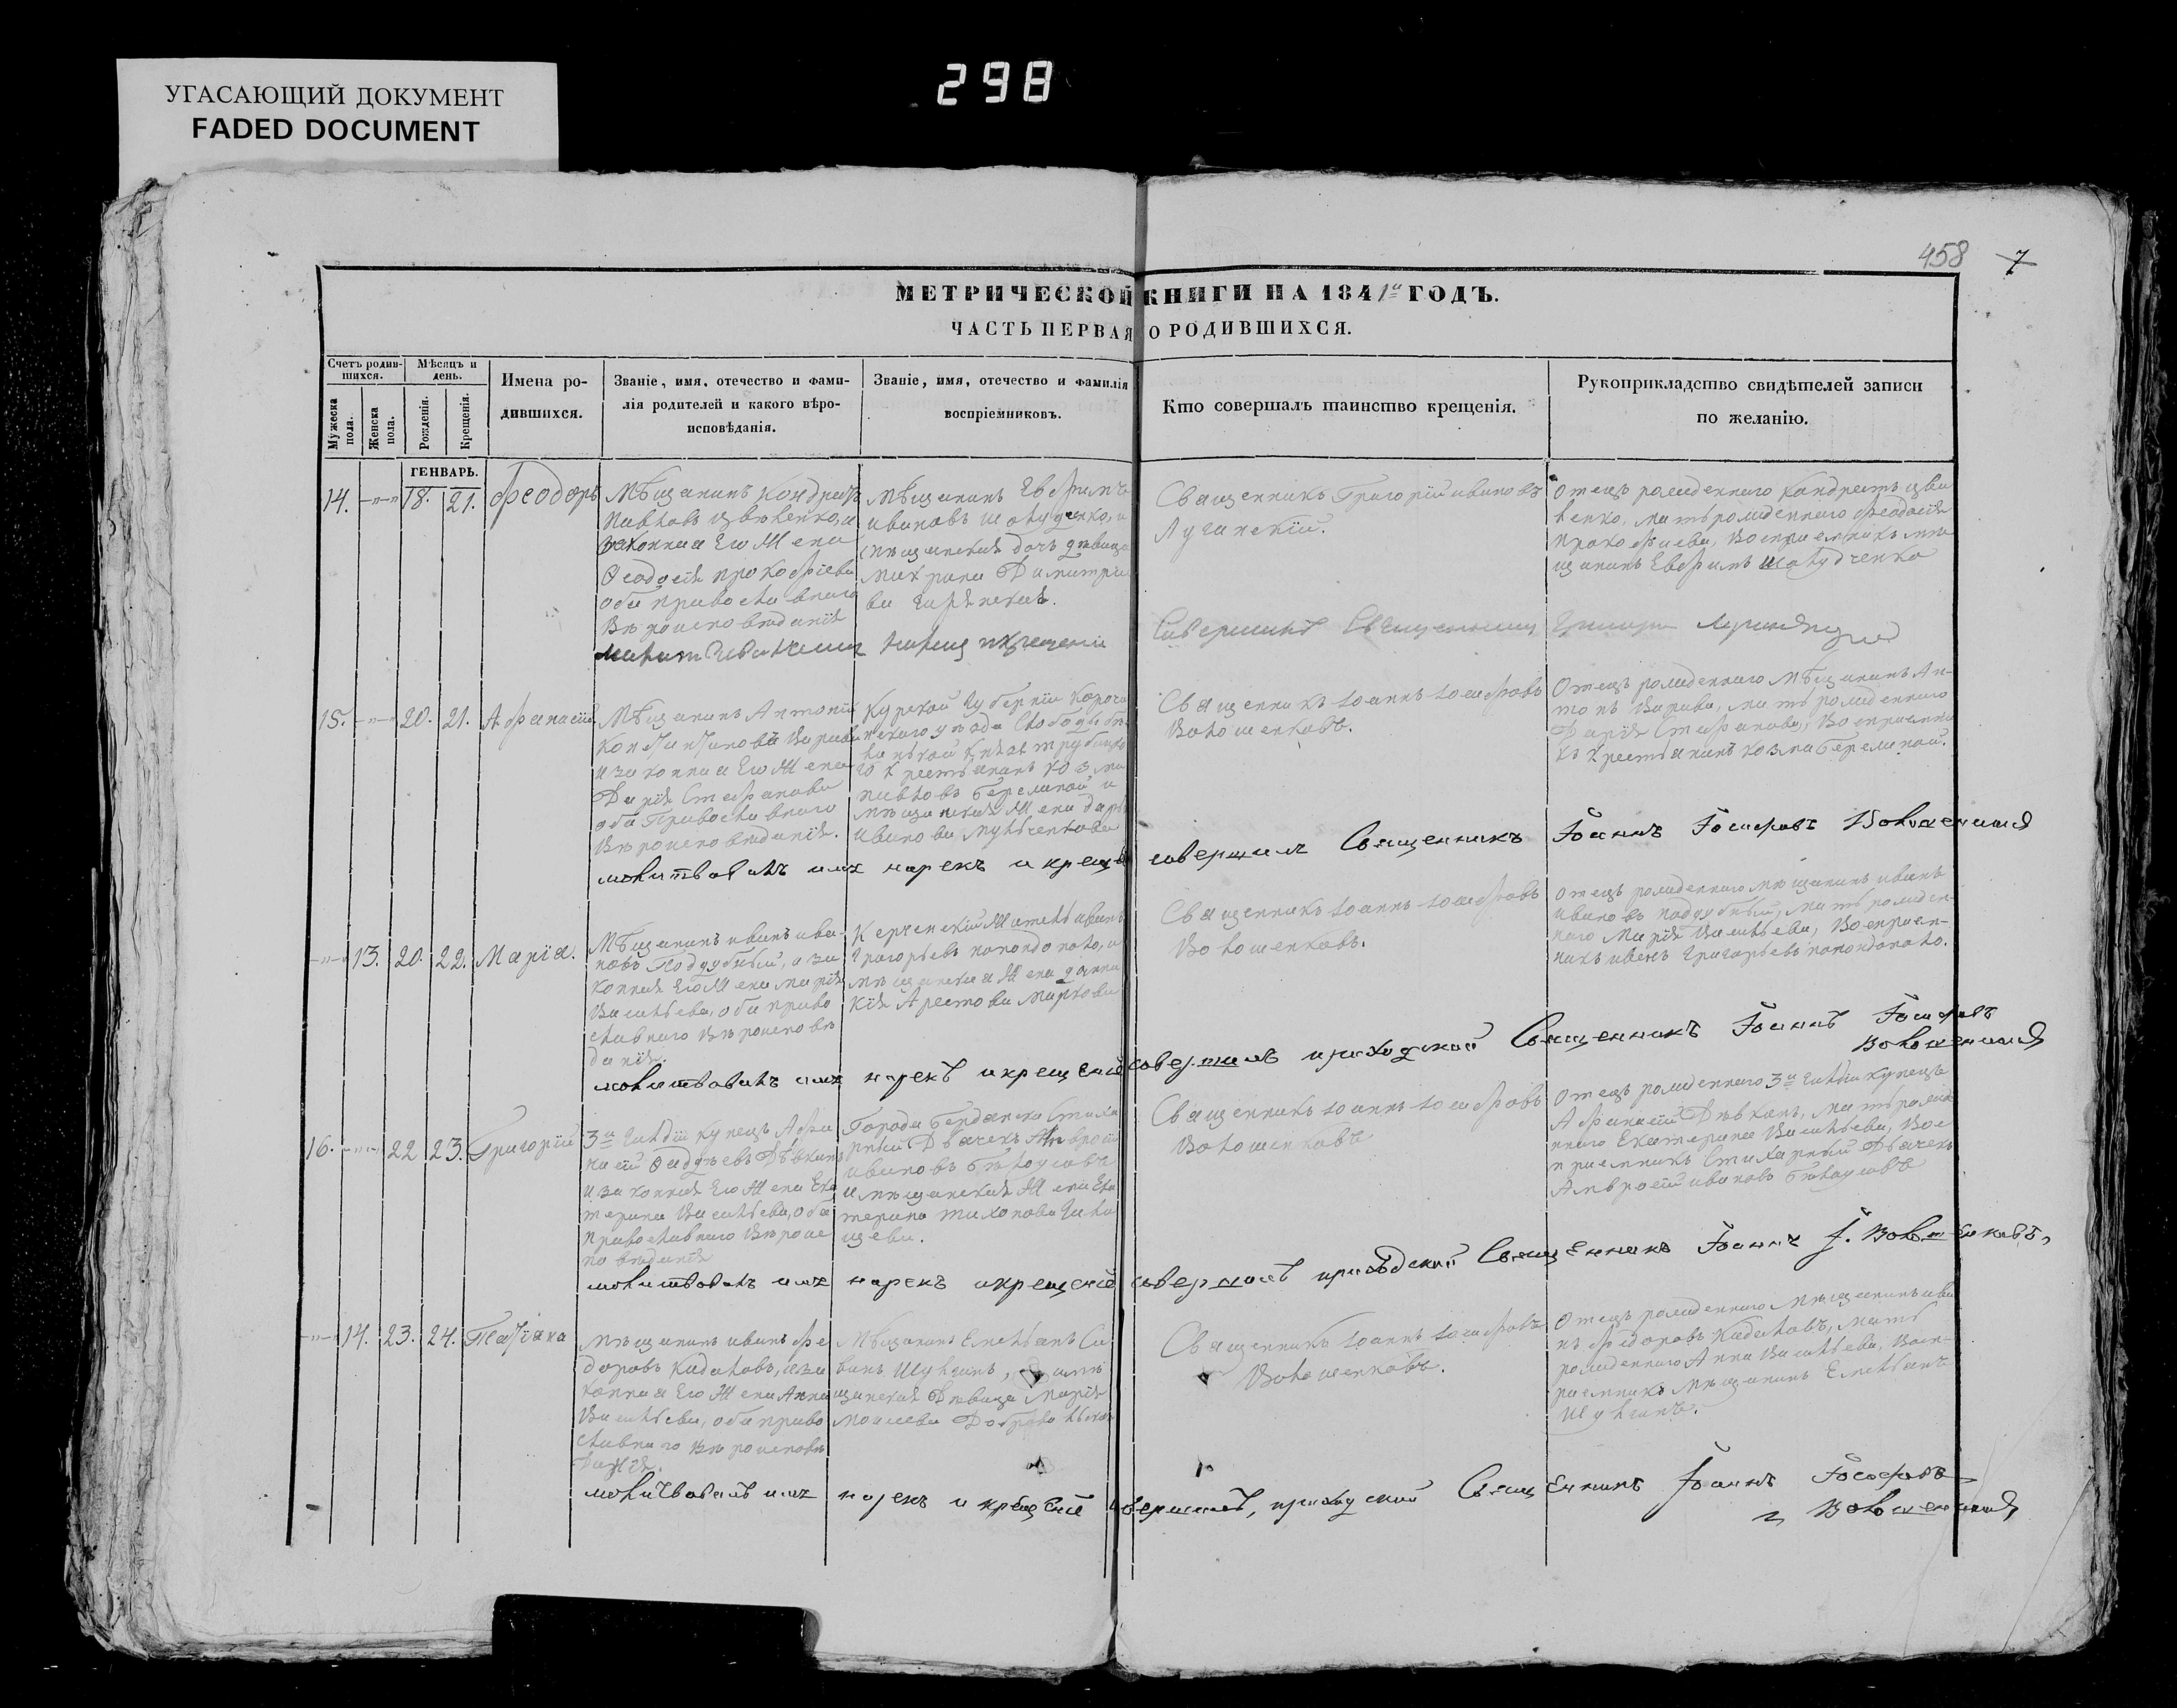 УГАСАЮЩИЙ ДОКУМЕНТ
FADED DOCUMENT
298
458 7
МЕТРИЧЕСКОЙ КНИГИ НА 1841й ГОДЪ.
ЧАСТЬ ПЕРВАЯ О РОДИВШИХСЯ.
Счетъ родив-
шихся.
Мужеска пола.
Женска пола.
Мѣсяцъ и день.
Рожденія.
Крещенія.
Имена ро-
дившихся.
Званіе, имя, отечество и фами-
лія родителей и какого вѣро-
исповѣданія.
Званіе, имя, отечество и фамилія
воспріемниковъ.
Кто совершалъ таинство крещенія.
Рукоприкладство свидѣтелей записи
по желанію.
ГЕНВАРЬ.
14. -"- 18. 21. Феодоръ
Мѣщанинъ Кондратъ
Павловъ Цвѣленко, и
законная Его Жена
Ѳеодосія Прокофіева
оба православнаго
Вѣроисповѣданія
Мѣщанинъ Евфимъ
Ивановъ Шолудченко, и
мѣщанская дочь дѣвица
Димитрі
ева
Священникъ Григорій Ивановъ
Лугинскій.
Отецъ рожденнаго Кондратъ Цвѣ
ленко, мать рожденнаго Феодосія
Прокофіева, Воспріемникъ мѣ
щанинъ Евфимъ Шолудченко
Совершилъ Священникъ
15. -"- 20. 21. Афанасій
Мѣщанинъ Антоній
Константиновъ
и законная Его Жена
Дарія Стефанова
оба Православнаго
Вѣроисповѣданія.
Курской Губерніи Короча
нскаго уѣзда Слободы
Князя Трубецко
го Крестьянинъ Козма
Павловъ Бережной и
мѣщанская Жена Дарія
Иванова
Священникъ Іоаннъ Іосифовъ
Волошенковъ.
Отецъ рожденнаго Мѣщанинъ Ан-
тонъ мать рожденнаго
Дарія Стефанова, Воспріемни
къ Крестьянинъ Козма Бережной.
молитвовалъ имя нарекъ и крещеніе совершилъ Священникъ Іоаннъ Іосифовъ Волошенковъ
-"- 13. 20. 22. Марія.
Мѣщанинъ Иванъ Ива-
новъ Поддубный, и за
конная Его Жена Марія
Васильева, оба право
славнаго Вѣроисповѣ
данія.
Керченскій Житель Иванъ
Григорьевъ Папандопало, и
мѣщанская Жена
Маркова
Священникъ Іоаннъ Іосифовъ
Волошенковъ.
Отецъ рожденнаго мѣщанинъ Иванъ
Ивановъ Поддубный, мать рожден-
наго Марія Васильева, Воспріем-
никъ Иванъ Григорьевъ Папандопало.
молитвовалъ имя нарекъ и крещеніе совершилъ приходской Священникъ Іоаннъ Іосифовъ
Волошенковъ
16. -"- 22 23. Григорій
3й Гильдіи Купецъ Афа
насій
и законная Его Жена Ека
терина Васильева, оба
православнаго Вѣроис
повѣданія
Города Бердянска Стиха
рный Дьячекъ Амвросій
Ивановъ Бѣлоусовъ
и мѣщанская Жена Ека
терина Тихонова
Священникъ Іоаннъ Іосифовъ
Волошенковъ
Отецъ рожденнаго 3й Гильдіи Купецъ
Афанасій мать рожде
ннаго Екатерина Васильева, Вос
пріемникъ Стихарный Дьячекъ
Амвросій Ивановъ Бѣлоусовъ
молитвовалъ имя нарекъ и крещеніе совершилъ приходской Священникъ Іоаннъ І. Волошенковъ
-"- 14. 23. 24. Татіана
Мѣщанинъ Иванъ Фе
доровъ Кидаловъ, и за
конная Его Жена Анна
Васильева, оба право
славнаго Вѣроисповѣ
данія.
Мѣщанинъ Емельянъ Са
винъ и мѣ
щанская Дѣвица Марія
Моисеева
Священникъ Іоаннъ Іосифовъ
Волошенковъ.
Отецъ рожденнаго Мѣщанинъ Ива
нъ Федоровъ Кидаловъ, мать
рожденнаго Анна Васильева, Восп-
ріемникъ Мѣщанинъ Емельянъ
молитвовалъ имя нарекъ и крещеніе совершилъ, приходской Священникъ Іоаннъ Іосифовъ
Волошенковъ